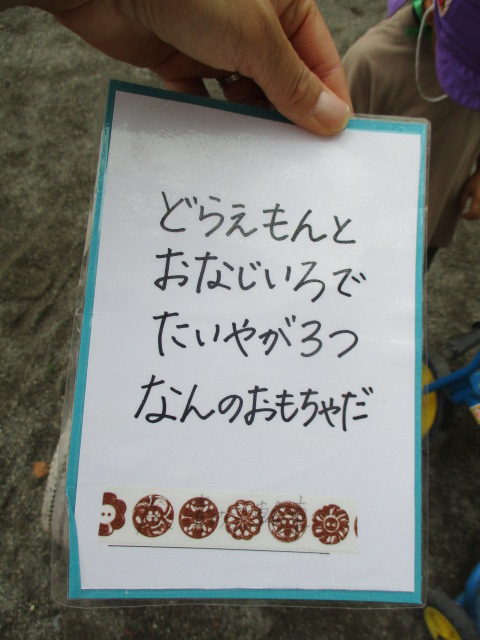 どらえもんと
おなじいろで
たいやが3つ
なんのおもちゃだ